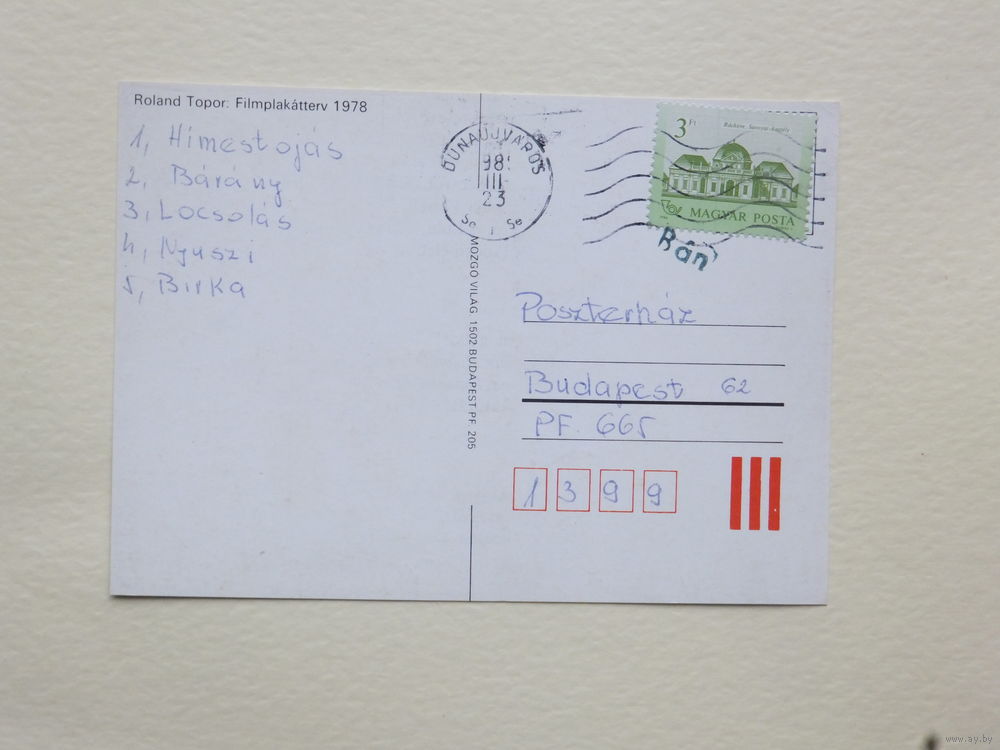 Roland Topor: Filmplakátterv 1978
1, Hímestojás
2, Bárány
3, Locsolás
4, Nyuszi
5, Birka
DUNAÚJVÁROS
III
23
MOZGÓ VILÁG 1502 BUDAPEST PF. 205
3 Ft
MAGYAR POSTA
Bán
Poszterház
Budapest 62
PF. 665
1399
www.ay.by